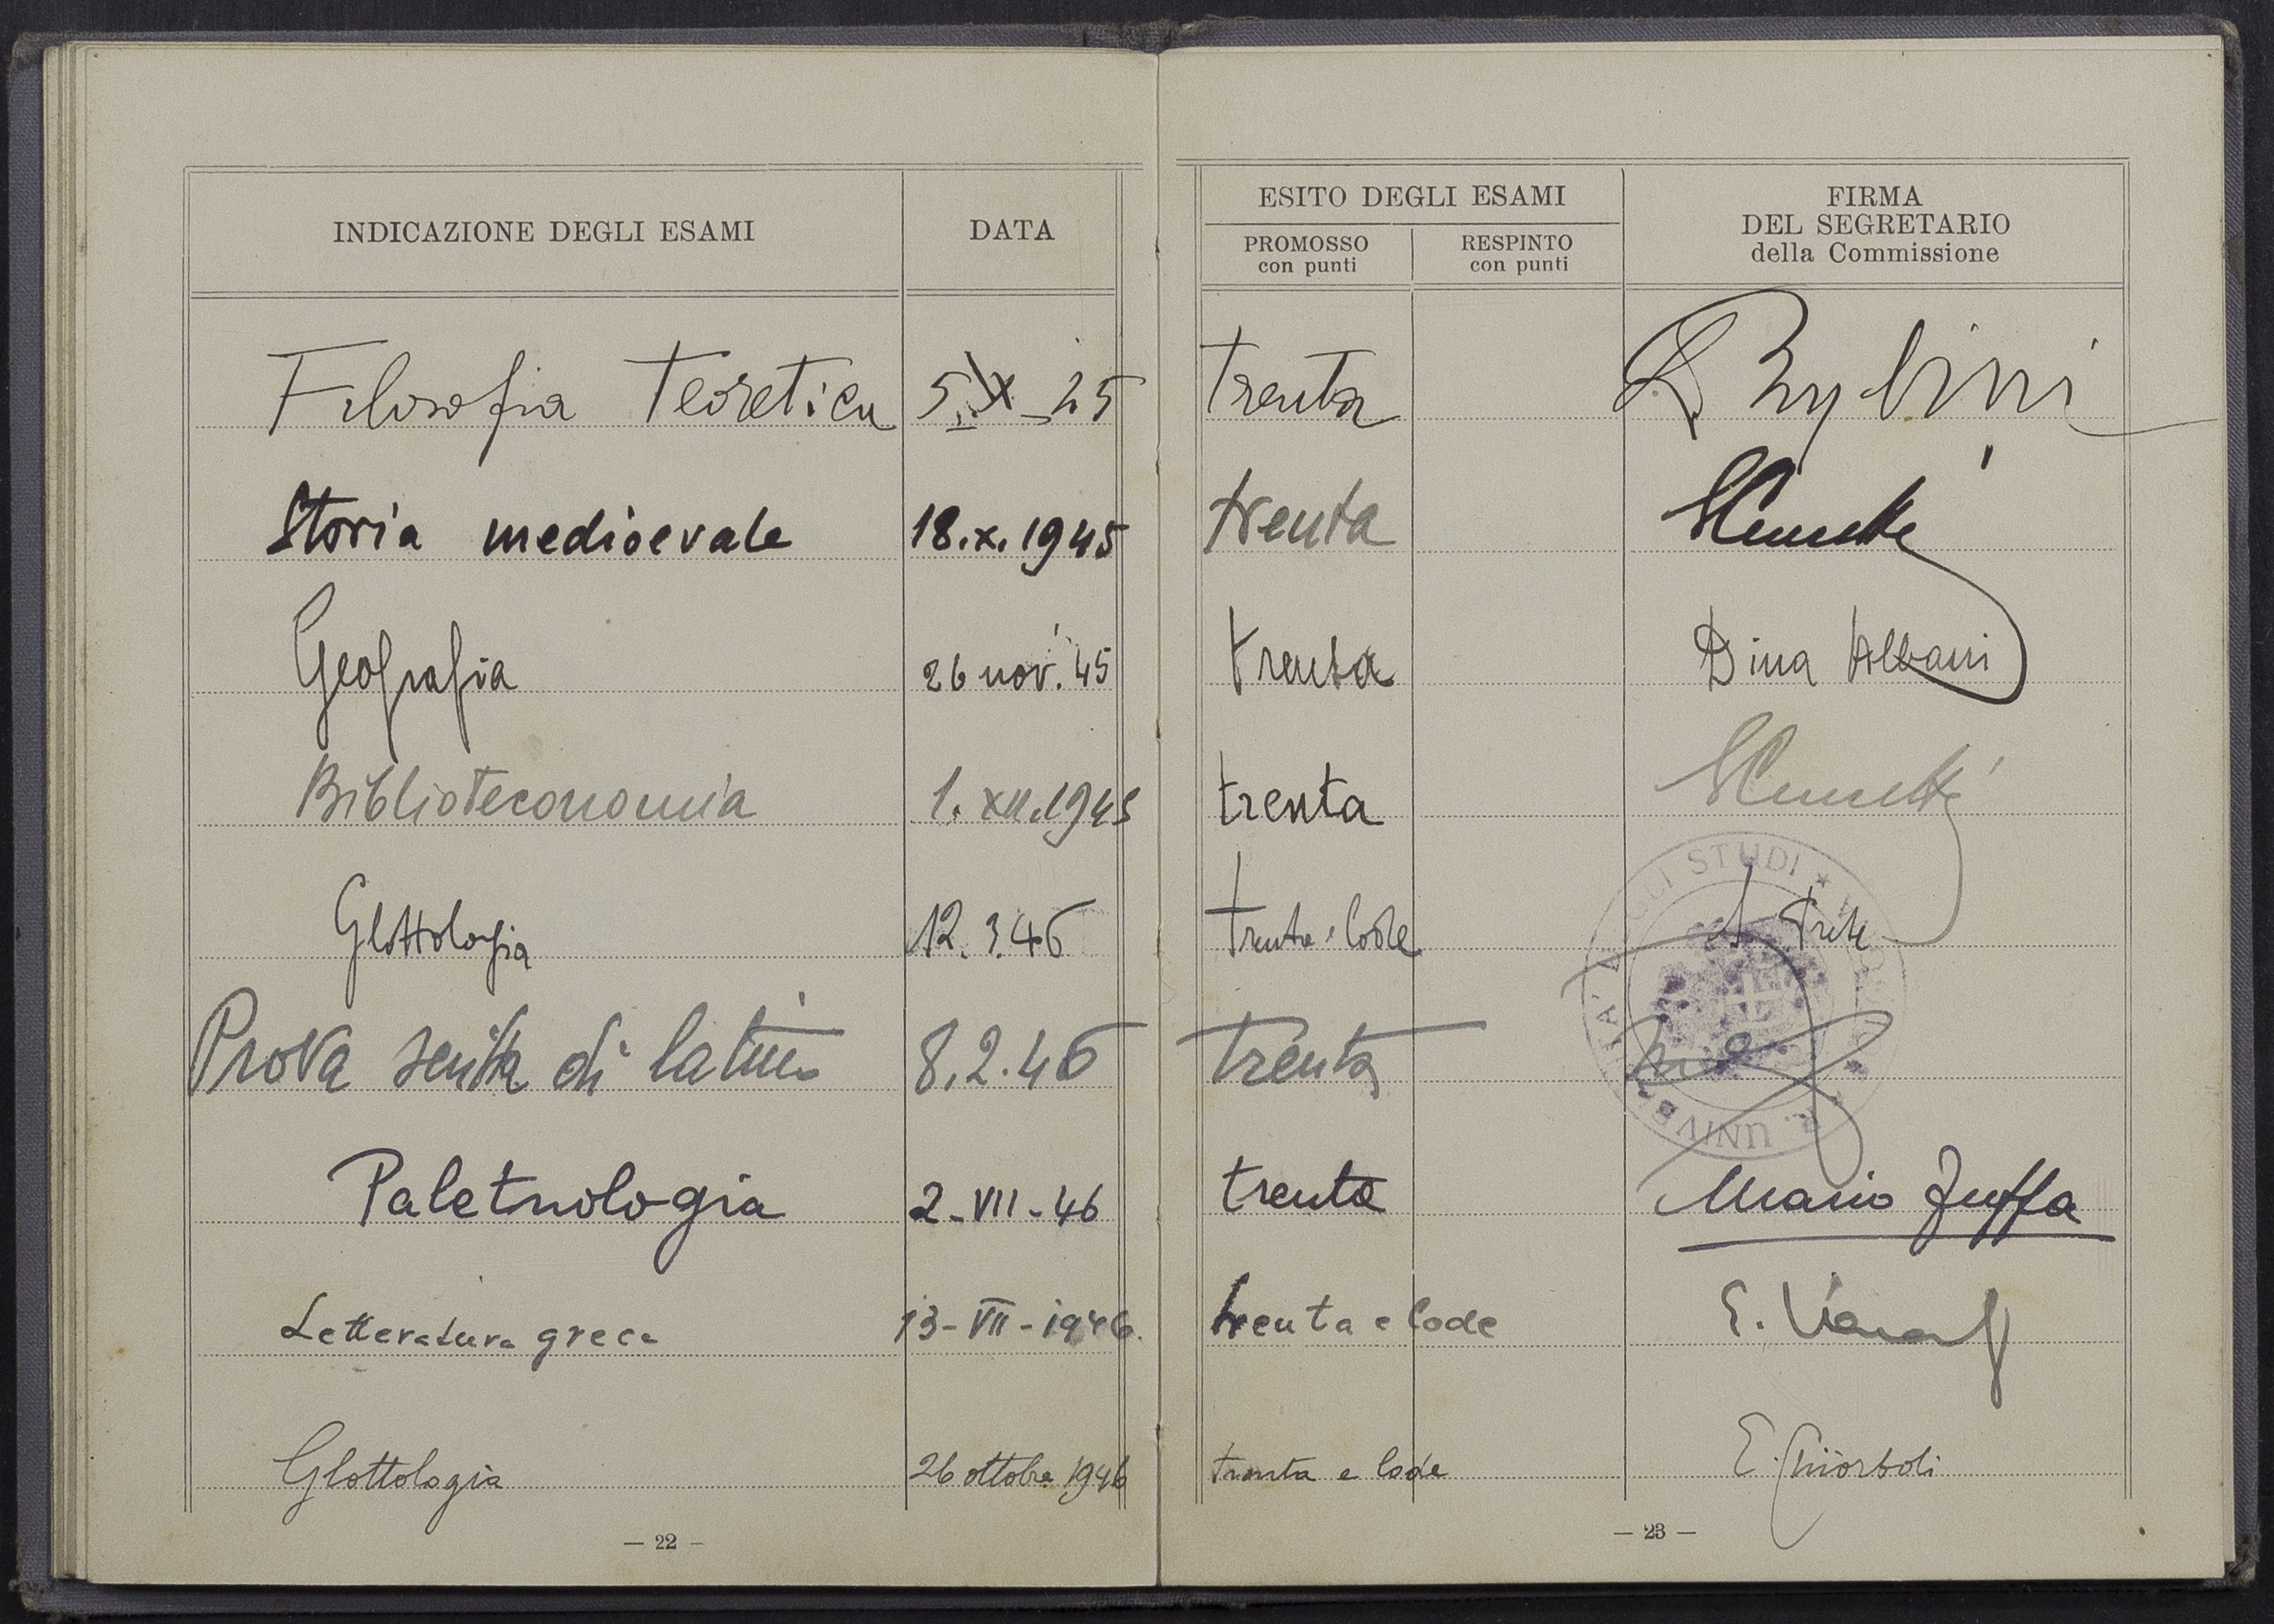 INDICAZIONE DEGLI ESAMI DATA
ESITO DEGLI ESAMI FIRMA
DEL SEGRETARIO
della Commissione
PROMOSSO
con punti
RESPINTO
con punti
Filosofia Teoretica trenta
Storia medioevale 18.X.1945 trenta
Geografia 26 nov. 45 trenta Dina Albani
Biblioteconomia 1.XII.1945 trenta
Glottologia 12.3.46 Trenta e lode
Prova scritta di latino 8.2.46 Trenta
Paletnologia 2-VII-46 trenta Mario Zuffa
Letteratura greca 13-VII-1946. trenta e lode E.
Glottologia 26 ottobre 1946 trenta e lode E. Chiorboli
— 22 —
— 23 —
GLI STUDI
UNIVER